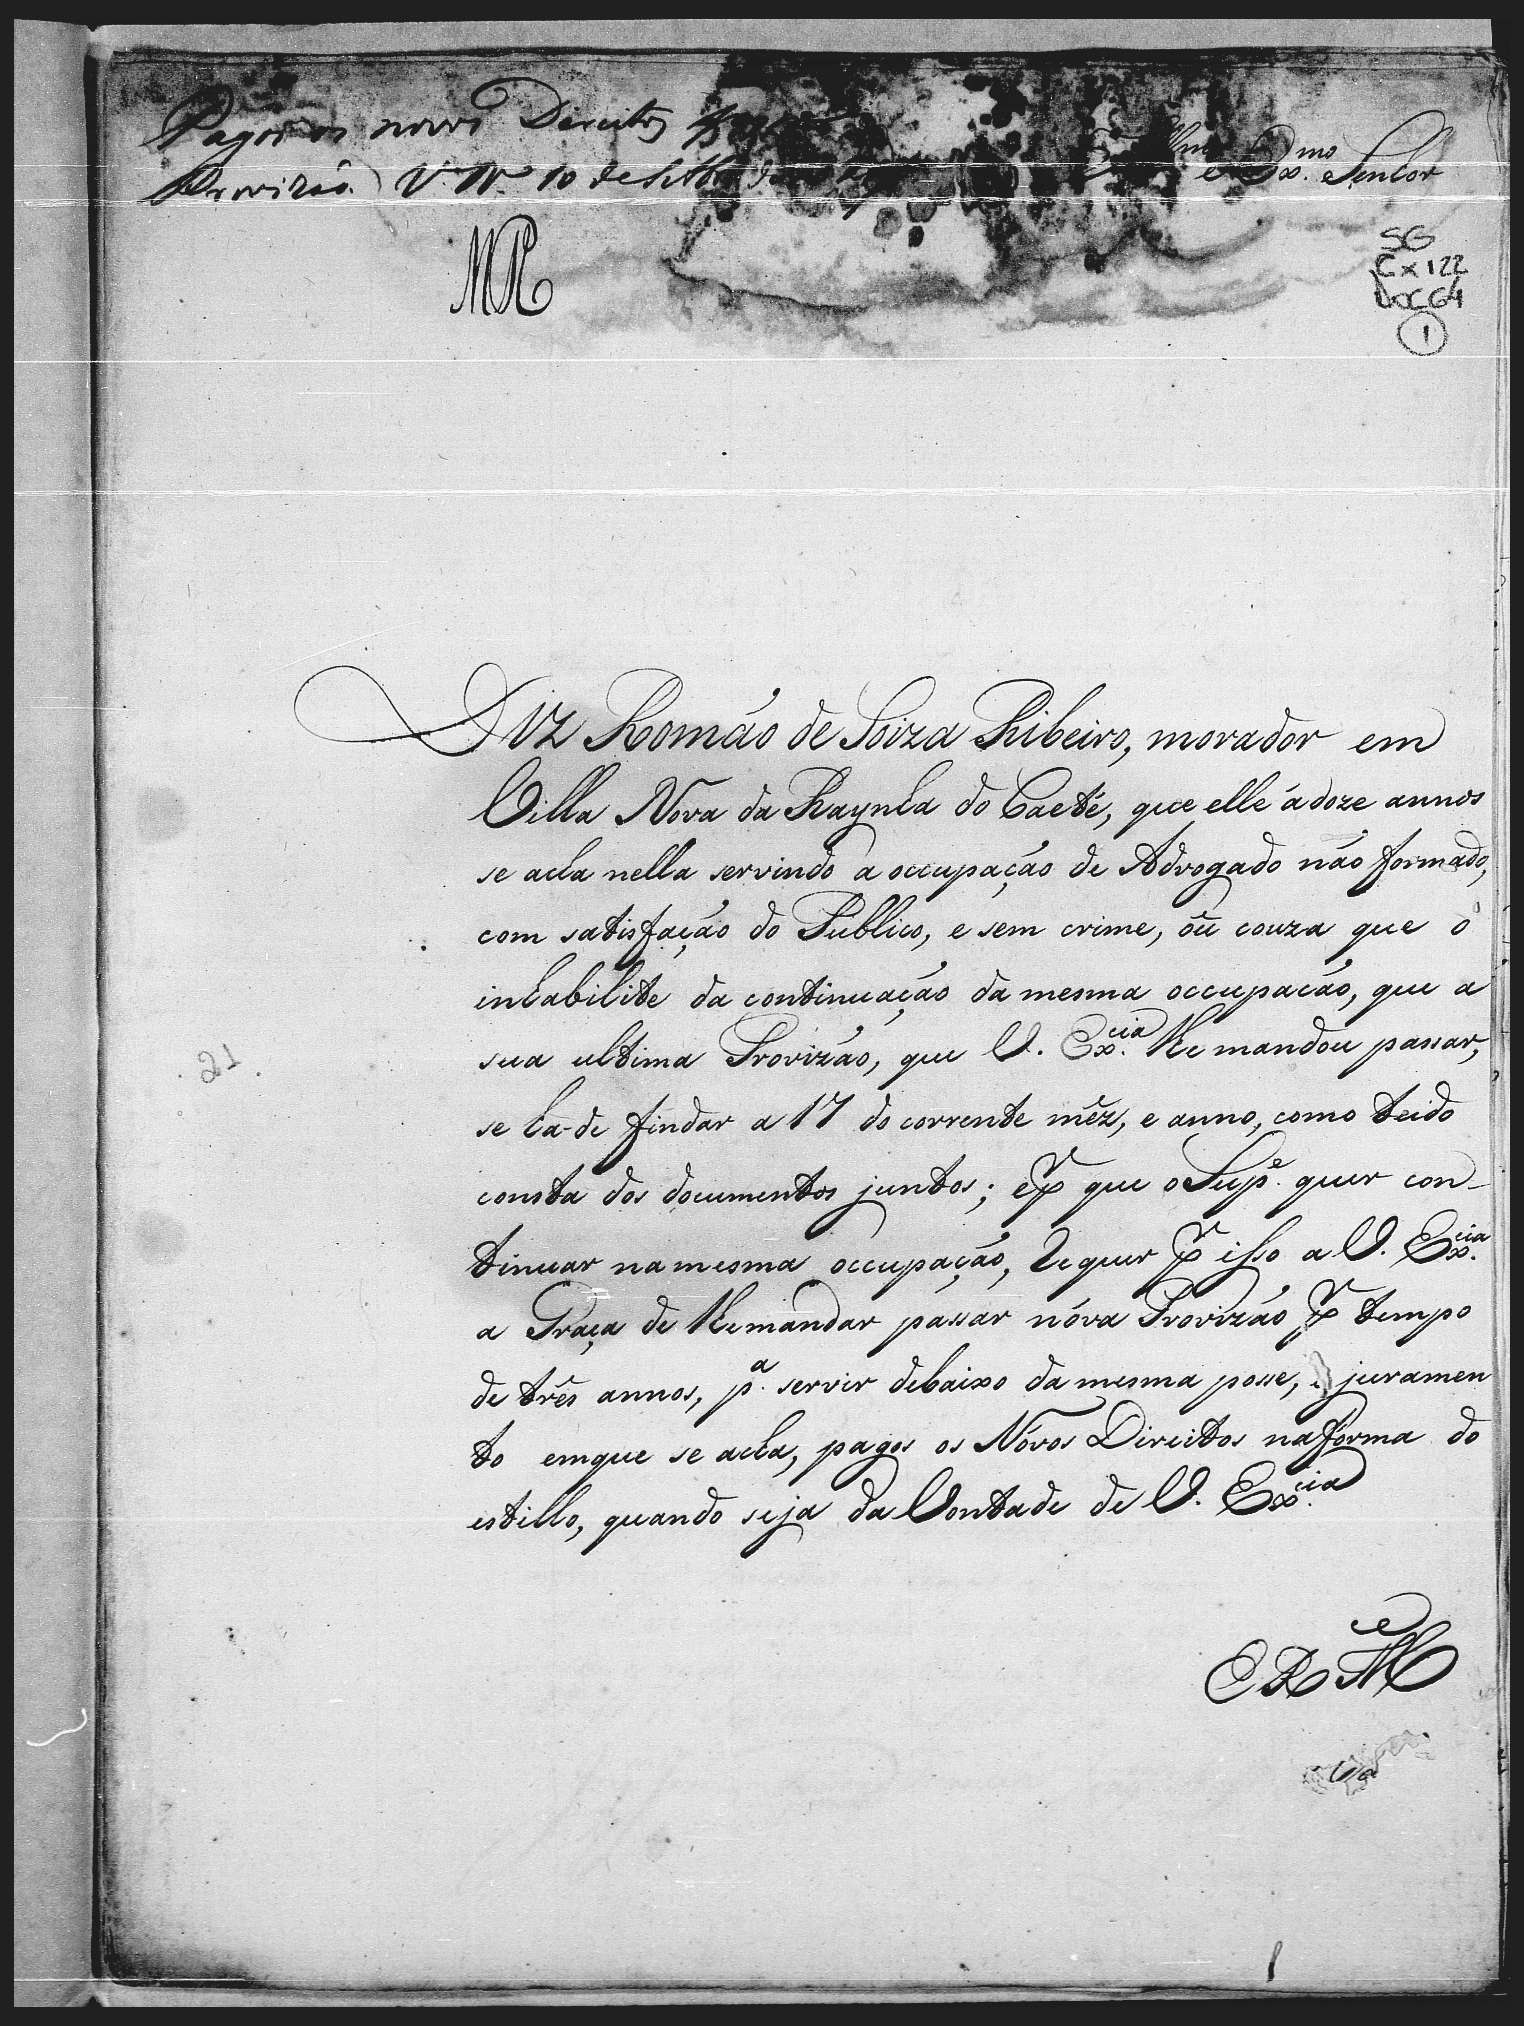 Pagos os novos Direitos
Provizão. V. Rª 10 de Setbrº
Illmº e Exmo Senhor
MR
SG
Cx 122
DOC 64
1
Diz Romáo de Soiza Ribeiro, morador em
Villa Nova da Raynha do Caeté, que elle á doze annos
se acha nella servindo a occupação de Advogado não formado,
com satisfação do Publico, e sem crime, óu couza que o
inhabilite da continuação da mesma occupacáo, que a
sua ultima Provizáo, que V. Excia lhe mandou passar,
se ha-de findar a 17 do corrente mêz, e anno, como tudo
consta dos documentos juntos; e pr que o Supe. quer con-
tinuar na mesma occupação, requer pr isso a V. Excia
a Graça de lhe mandar passar nóva Provizáo pr tempo
de três annos, pa. servir debaixo da mesma posse, e juramen
to em que se acha, pagos os Nóvos Direitos na fórma do
estillo, quando seja da Vontade de V. Excia
21
E R Mce
1